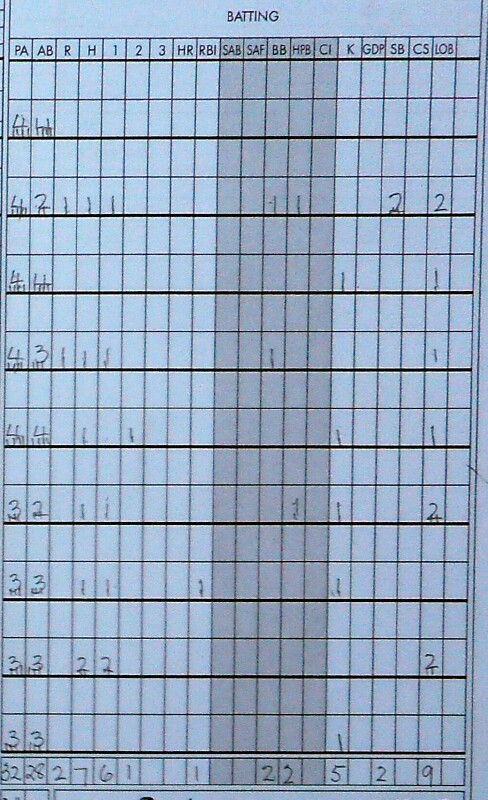 BATTING
PA AB R H 1 2 3 HR RBI SAB SAF BB HPB CI K GDP SB CS LOB
4 4
4 2 1 1 1 1 1 2 2
4 4 1 1
4 3 1 1 1 1 1
4 4 1 1 1 1
3 2 1 1 1 1 2
3 3 1 1 1 1
3 3 2 2 2
3 3 1
32 28 2 7 6 1 1 2 2 5 2 9